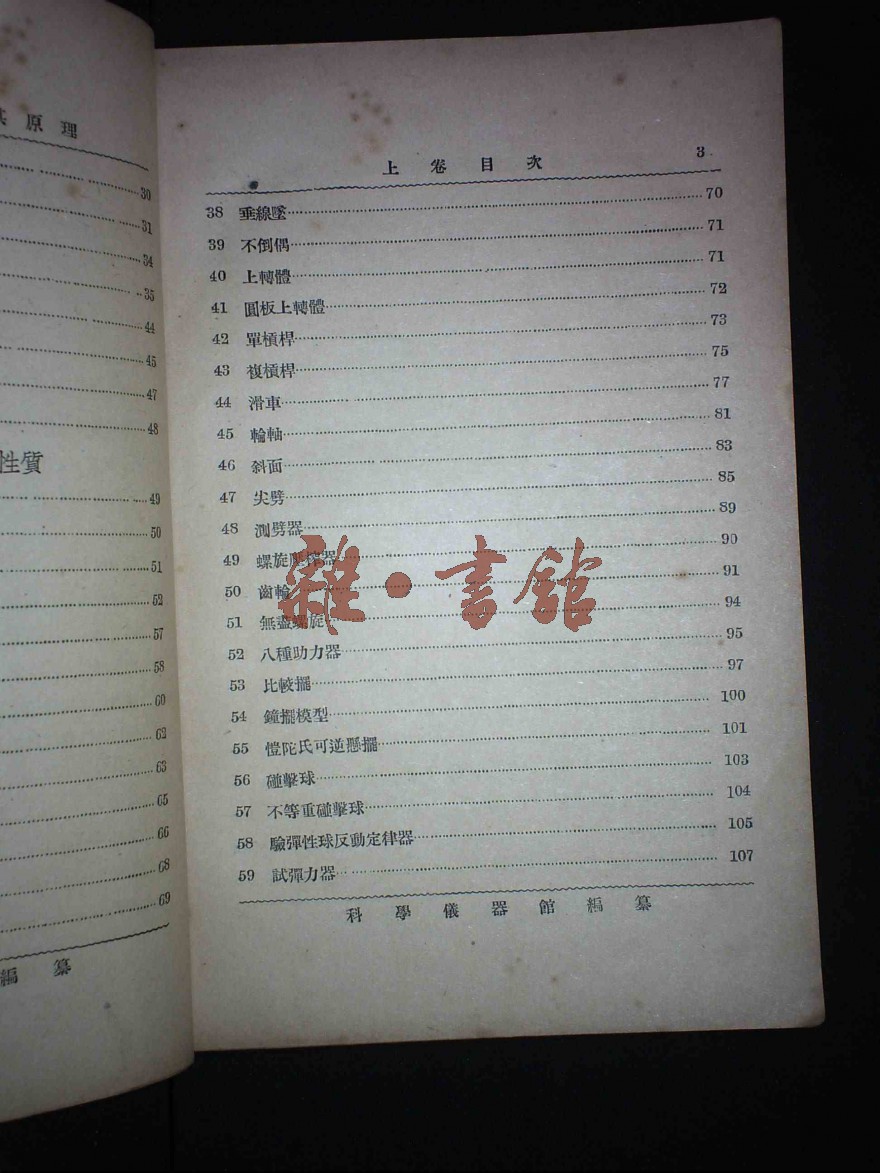 原理
30
31
34
35
44
45
47
48
性質
49
50
51
52
57
58
60
62
63
65
66
68
69
編纂
上卷目次 3
38 垂線墜 70
39 不倒偶 71
40 上轉體 71
41 圓板上轉體 72
42 單槓桿 73
43 複槓桿 75
44 滑車 77
45 輪軸 81
46 斜面 83
47 尖劈 85
48 測劈器 89
49 螺旋壓榨器 90
50 齒輪 91
51 無盡螺旋 94
52 八種助力器 95
53 比較擺 97
54 鐘擺模型 100
55 愷陀氏可逆懸擺 101
56 碰擊球 103
57 不等重碰擊球 104
58 驗彈性球反動定律器 105
59 試彈力器 107
科學儀器館編纂
雜·書館